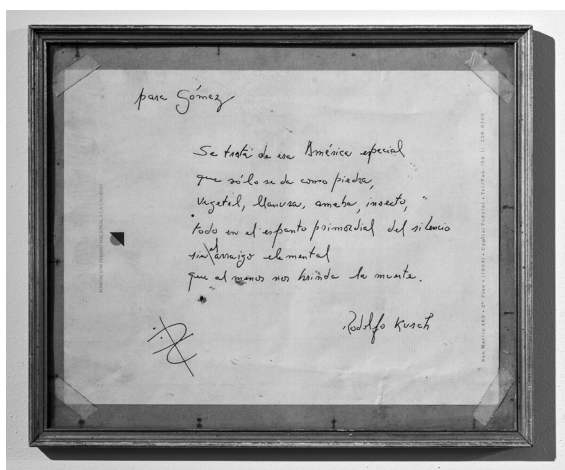 para Gómez
Se trata de esa América especial
que sólo se da como piedra,
vegetal, llanura, ameba, insecto,
todo en el espanto primordial del silencio
sin el arraigo elemental
que al menos nos brinda la muerte.
Rodolfo Kusch